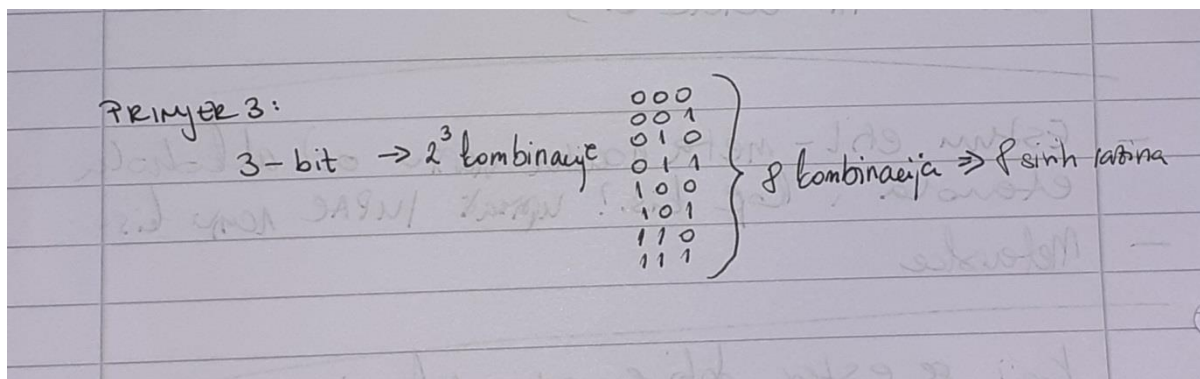 PRIMJER 3:
3-bit → 2³ kombinacije
000
001
010
011
100
101
110
111
8 kombinacija ⇒ 8 sivih razina